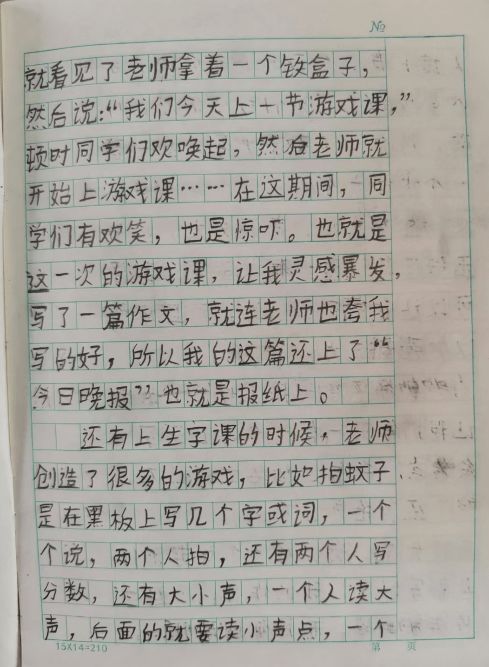 №
就看见了老师拿着一个铁盒子，
然后说：“我们今天上一节游戏课，”
顿时同学们欢唤起，然后老师就
开始上游戏课……在这期间，同
学们有欢笑，也是惊吓。也就是
这一次的游戏课，让我灵感暴发，
写了一篇作文，就连老师也夸我
写的好，所以我的这篇还上了“
今日晚报”也就是报纸上。
还有上生字课的时候，老师
创造了很多的游戏，比如拍蚊子、
是在黑板上写几个字或词，一个
个说，两个人拍，还有两个人写
分数，还有大小声，一个人读大
声，后面的就要读小声点，一个
15X14=210 第 页